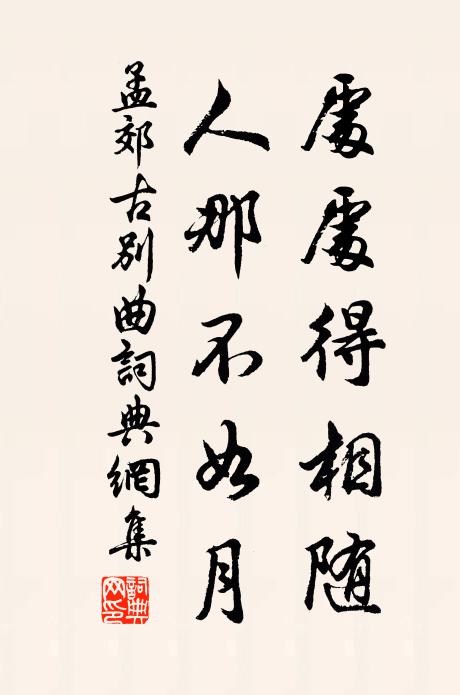 處處得相隨
人那不如月
孟郊古別曲詞典網集
詞典
网印